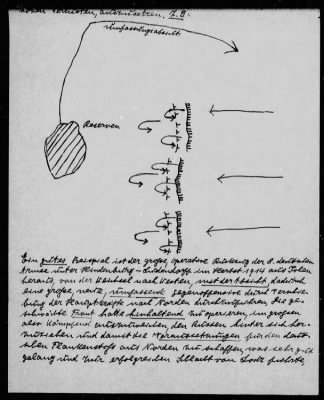 auszusetzen, z.B.
Umfassungsabsicht
Reserven
Ein gutes Beispiel ist der große, operative Rückzug der 9. deutschen
Armee unter Hindenburg-Ludendorff im Herbst 1914 aus Polen
heraus, von der Weichsel nach Westen, mit der Absicht, dadurch
eine große, neue, umfassende Gegenoffensive durch Verschie-
bung der Hauptkräfte nach Norden durchzuführen. Die ge-
schwächte Front hatte hinhaltend zu operieren, im großen
also kämpfend auszuweichen, den Russen hinter sich her-
zuziehen und damit die Voraussetzungen für den deut-
schen Flankenstoß aus Norden zu schaffen, was sehr gut
gelang und zur erfolgreichen Schlacht von Lodz führte.